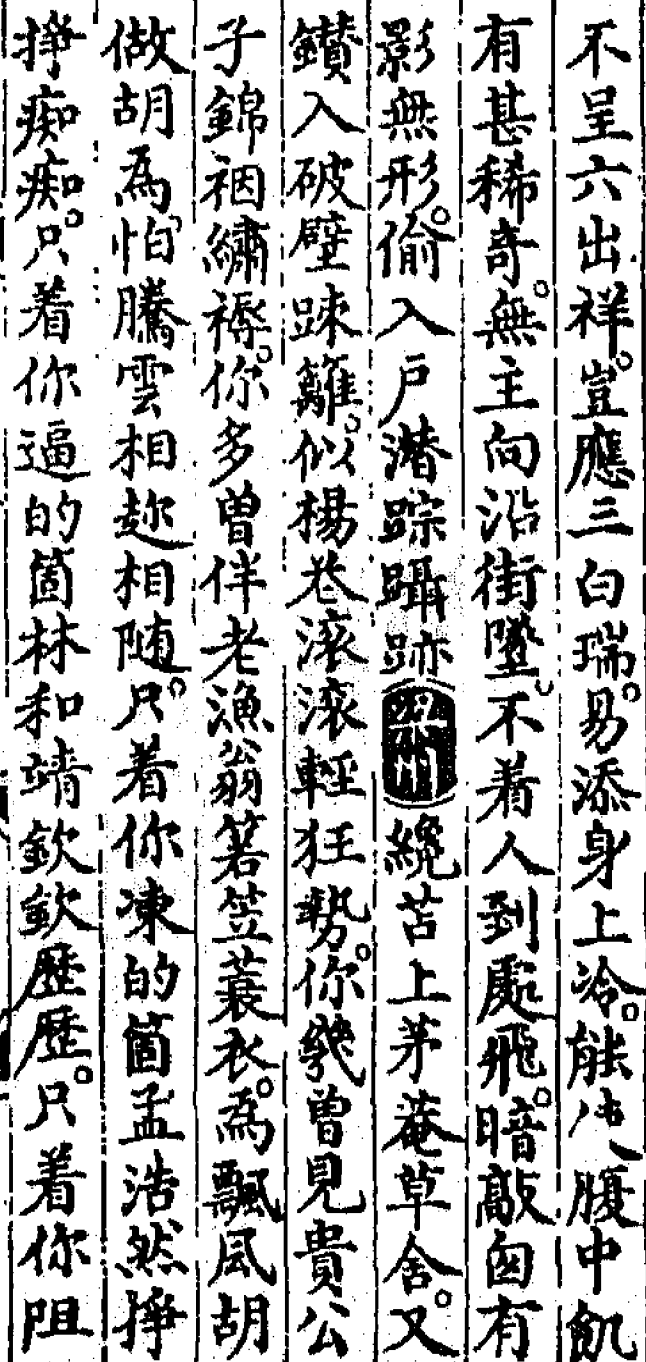 不呈六出祥。豈應三白瑞。易添身上冷。能使腹中飢
有甚稀奇。無主向沿街墜。不着人到處飛。暗敲囱有
影無形。偷入戶潜踪躡跡 纔苫上茅菴草舍。又
鑚入破壁踈籬。似楊花滚滚輕狂勢。你㡬曾見貴公
子錦裀繡褥。你多曾伴老漁翁箬笠蓑衣。為飄風胡
做胡為怕騰雲相趂相随。只着你凍的箇孟浩然掙
掙痴痴。只着你逼的箇林和靖欽欽歷歷。只着你阻